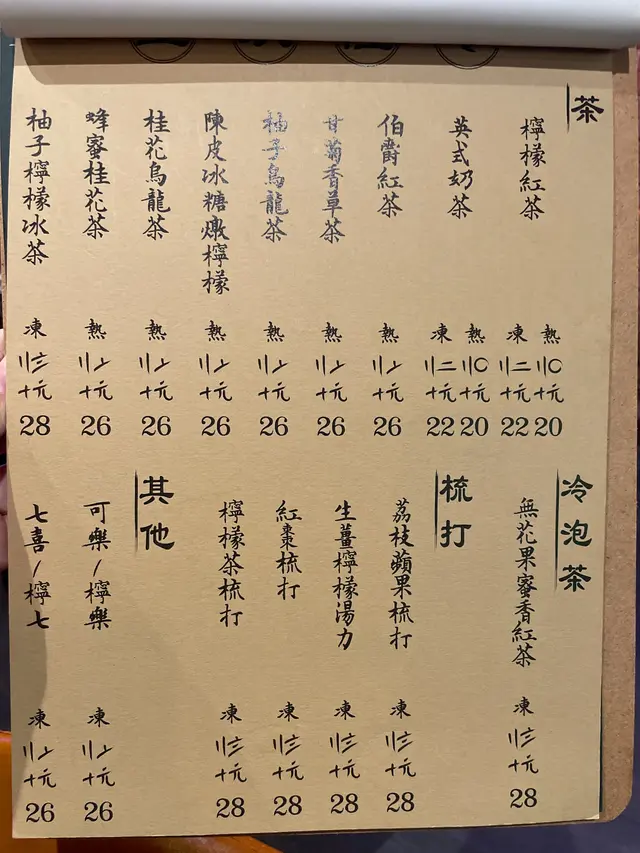 茶
檸檬紅茶
熱
〢〇
十元
20
凍
〢二
十元
22
英式奶茶
熱
〢〇
十元
20
凍
〢二
十元
22
伯爵紅茶
熱
〢〦
十元
26
甘菊香草茶
熱
〢〦
十元
26
柚子烏龍茶
熱
〢〦
十元
26
陳皮冰糖燉檸檬
熱
〢〦
十元
26
桂花烏龍茶
熱
〢〦
十元
26
蜂蜜桂花茶
熱
〢〦
十元
26
柚子檸檬冰茶
凍
〢〨
十元
28
冷泡茶
無花果蜜香紅茶
凍
〢〨
十元
28
梳打
荔枝蘋果梳打
凍
〢〨
十元
28
生薑檸檬湯力
凍
〢〨
十元
28
紅棗梳打
凍
〢〨
十元
28
檸檬茶梳打
凍
〢〨
十元
28
其他
可樂/檸樂
凍
〢〦
十元
26
七喜/檸七
凍
〢〦
十元
26